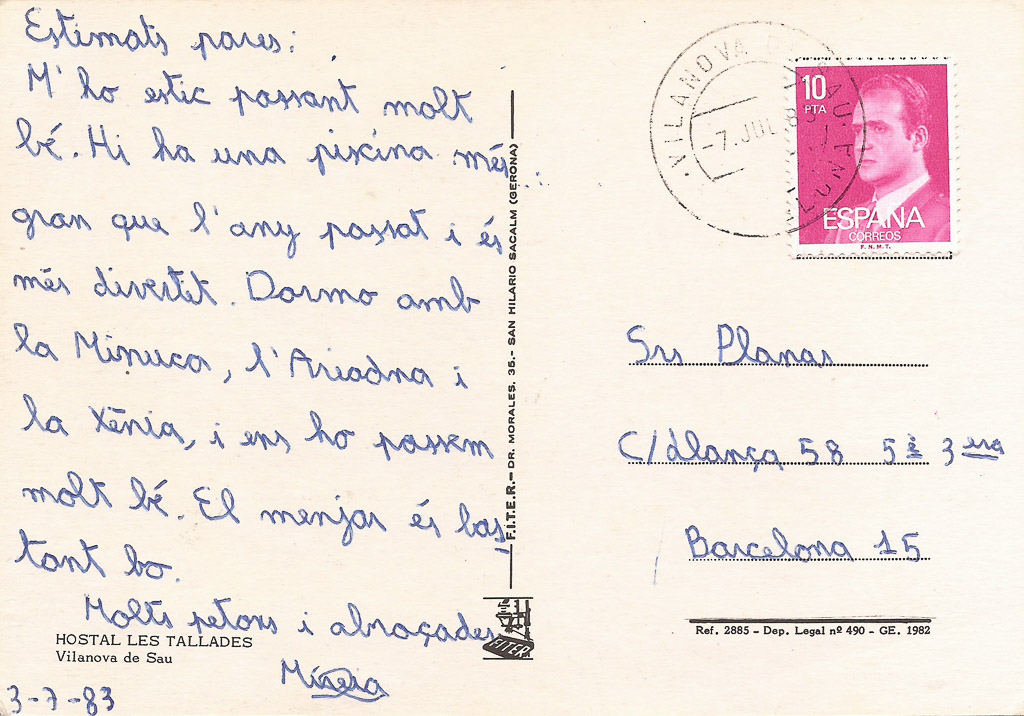 Estimats pares:
M'ho estic passant molt
bé. Hi ha una piscina més
gran que l'any passat i és
més divertit. Dormo amb
la Minuca, l'Ariadna i
la Xènia, i ens ho passem
molt bé. El menjar és bas-
tant bo.
Molts petons i abraçades
Mireia
HOSTAL LES TALLADES
Vilanova de Sau
3-7-83
F.I.T.E.R.- DR. MORALES, 35.- SAN HILARIO SACALM (GERONA)
FITER
VILANOVA
-7.JUL.83
10
PTA
ESPAÑA
CORREOS
F.N.M.T.
Srs Planas
C/dlança 58 5è 3era
Barcelona 15
Ref. 2885 - Dep. Legal nº 490 - GE. 1982